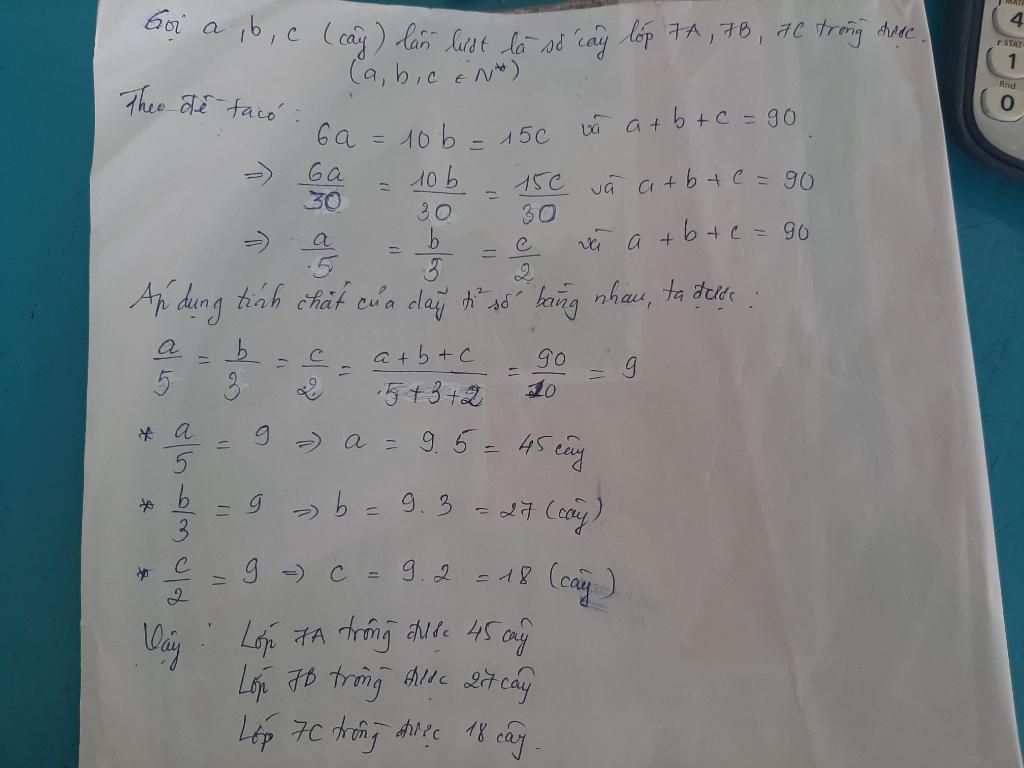 Gọi a, b, c (cây) lần lượt là số cây lớp 7A, 7B, 7C trồng được.
(a, b, c ∈ N*)
Theo đề ta có:
6a = 10b = 15c và a + b + c = 90.
=> 6a/30 = 10b/30 = 15c/30 và a + b + c = 90
=> a/5 = b/3 = c/2 và a + b + c = 90
Áp dụng tính chất của dãy tỉ số bằng nhau, ta được:
a/5 = b/3 = c/2 = (a + b + c)/(5 + 3 + 2) = 90/10 = 9
* a/5 = 9 => a = 9.5 = 45 cây
* b/3 = 9 => b = 9.3 = 27 (cây)
* c/2 = 9 => c = 9.2 = 18 (cây)
Vậy: Lớp 7A trồng được 45 cây
Lớp 7B trồng được 27 cây
Lớp 7C trồng được 18 cây.
4
STAT
1
Rnd
0